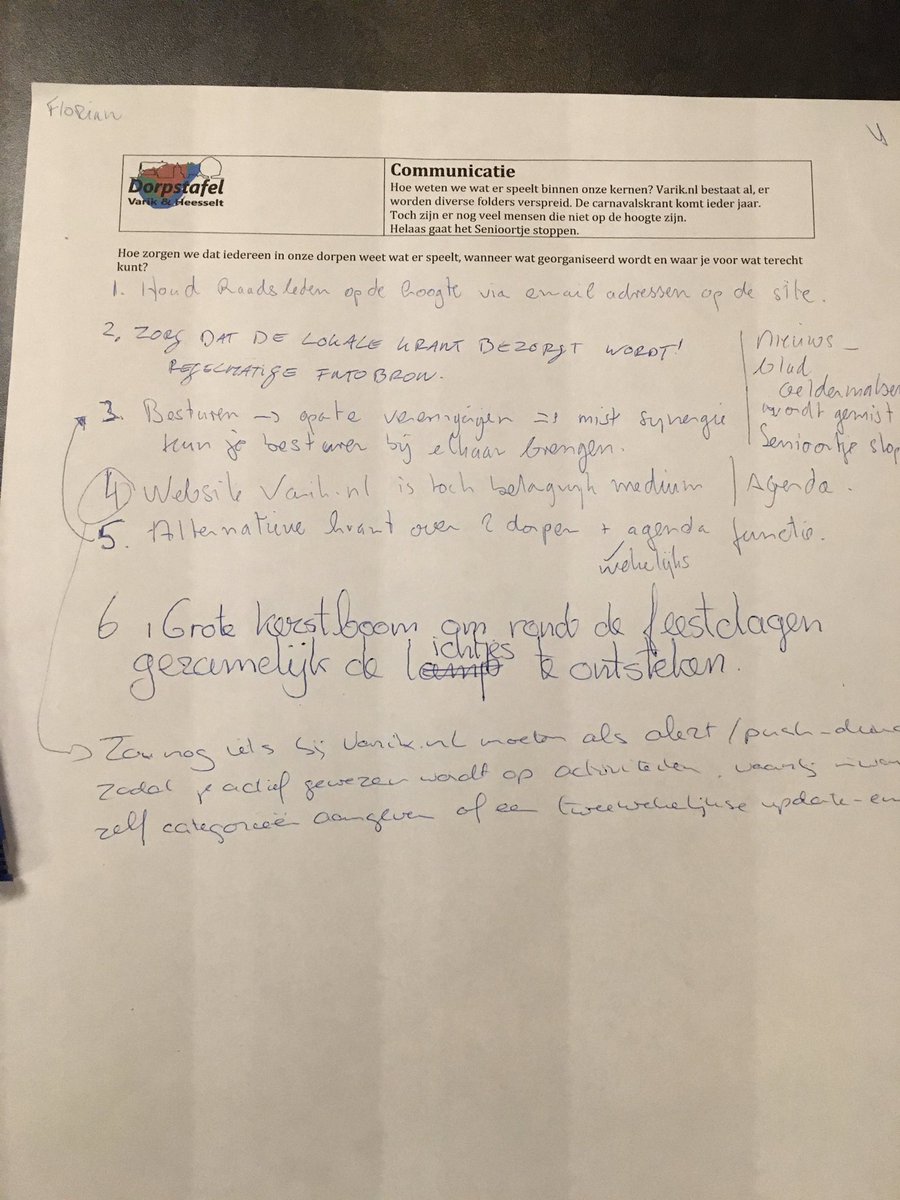 Florian
4
Dorpstafel
Varik & Heesselt
Communicatie
Hoe weten we wat er speelt binnen onze kernen? Varik.nl bestaat al, er
worden diverse folders verspreid. De carnavalskrant komt ieder jaar.
Toch zijn er nog veel mensen die niet op de hoogte zijn.
Helaas gaat het Senioortje stoppen.
Hoe zorgen we dat iedereen in onze dorpen weet wat er speelt, wanneer wat georganiseerd wordt en waar je voor wat terecht
kunt?
1. Houd Raadsleden op de hoogte via email adressen op de site.
2. ZORG DAT DE LOKALE KRANT BEZORGT WORDT!
REGELMATIGE INFOBRON.
Nieuws-
blad
Geldermalsen
wordt gemist
Senioortje stop
3. Besturen → aparte verenigingen => mist synergie
kun je besturen bij elkaar brengen.
4 Website Varik.nl is toch belagrijk medium | Agenda.
5. Alternatieve krant over 2 dorpen + agenda functie.
wekelijks
6. Grote kerstboom om rond de feestdagen
gezamelijk de lichtjes te ontsteken.
→ Zou nog iets bij Varik.nl moeten als alert/push-
zodat je actief gewezen wordt op activiteiten, waarbij
zelf categorieën aangeven of een tweewekelijkse update-em